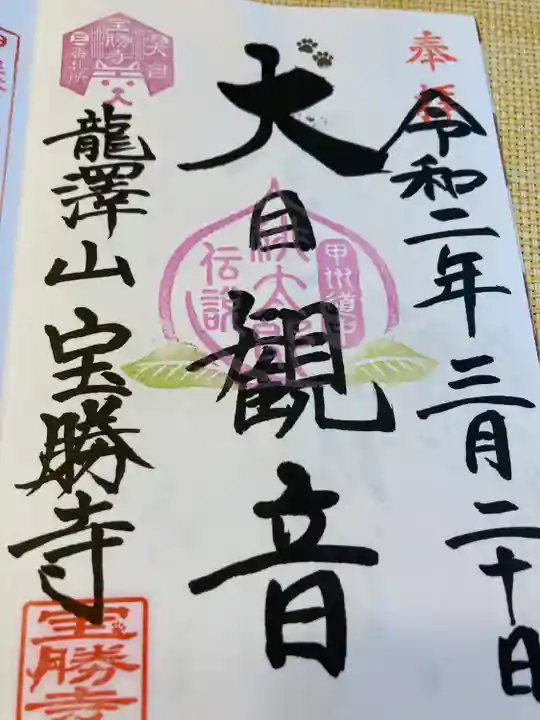 奉拝
令和二年三月二十日
大目観音
甲州道中
桃太郎
伝説
龍澤山 宝勝寺
宝勝寺
宝勝寺